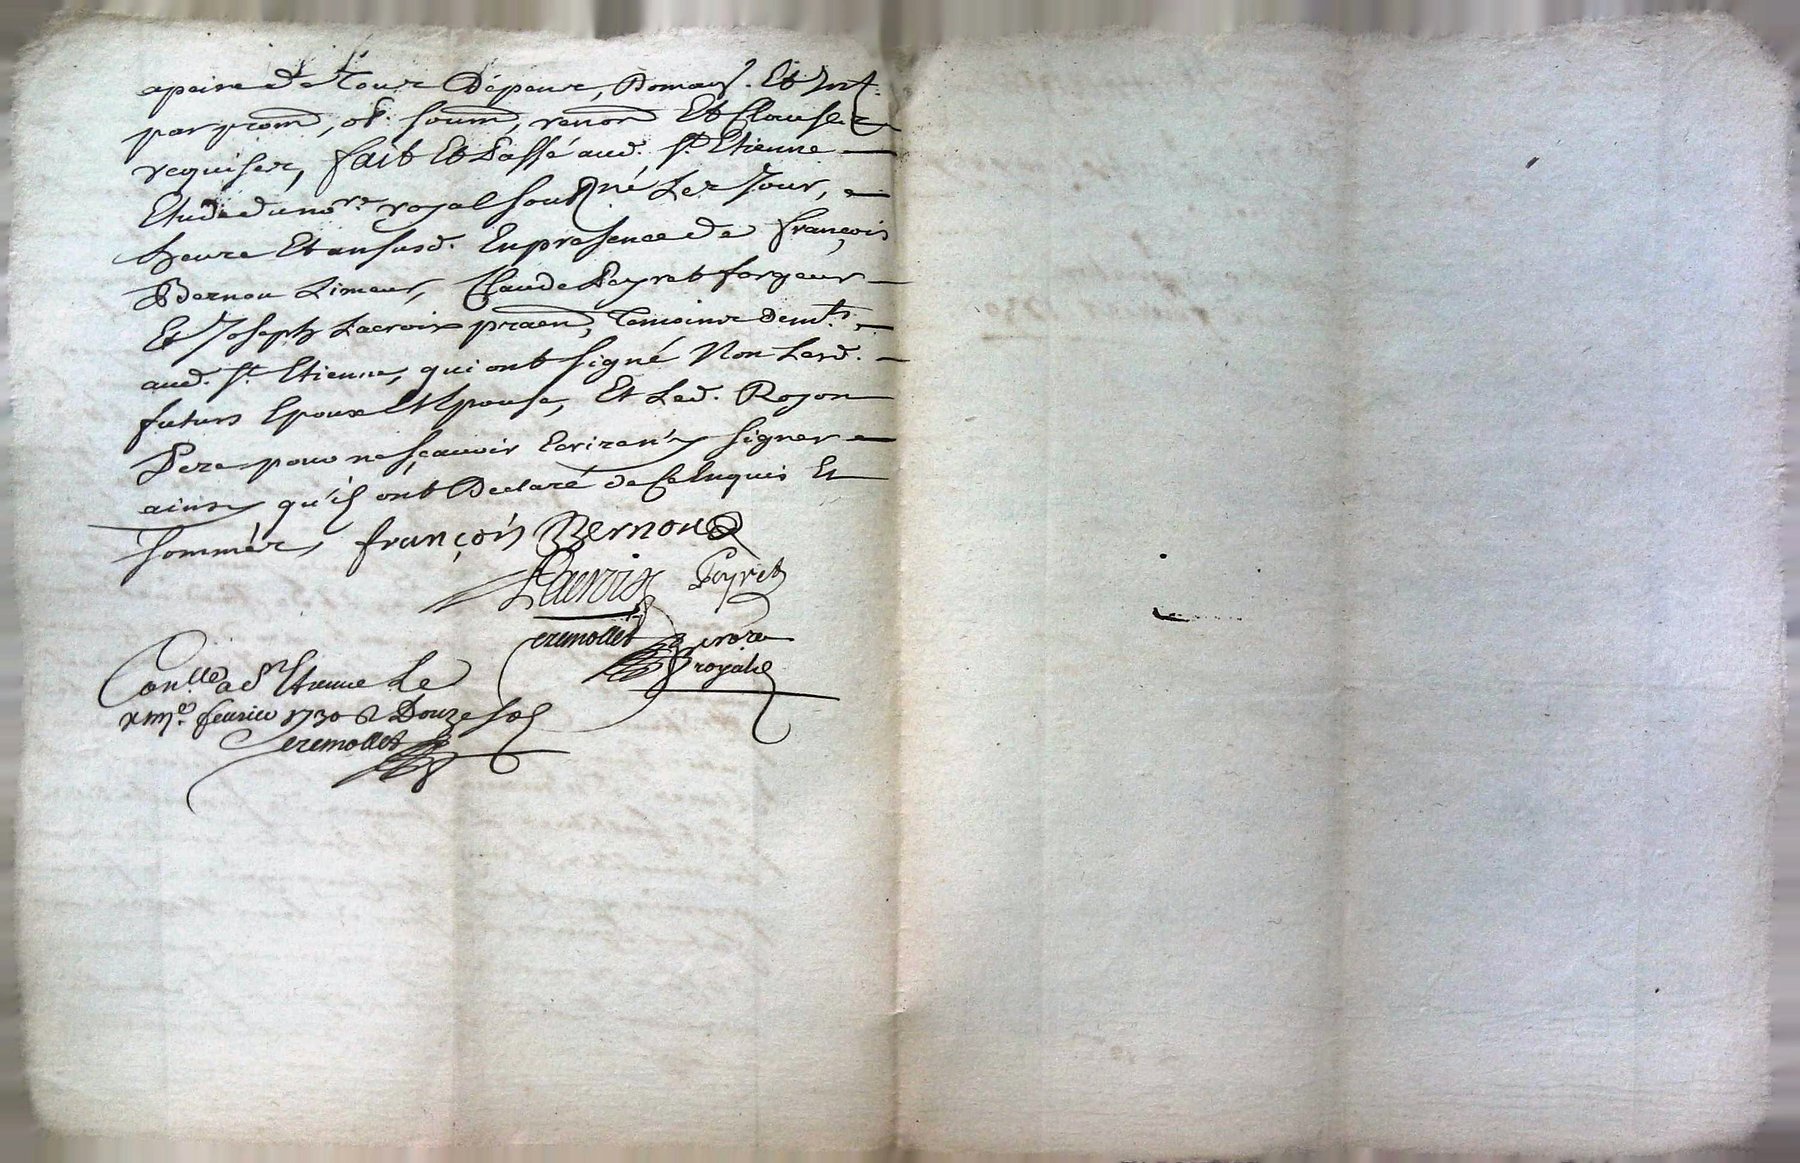 apeine de tous Dépens, Domag. Et Int.
par prom, ob. soum, renon Et Clauses
requises, fait Et Passé aud. St. Etienne
Etude du nore royal sousné Les Jour,
heure Et an susd. En presence de françois
Bernou Limeur, Claude Peyret forgeur
Et Joseph Lacroix praen, Temoins demts.
aud. St. Etienne, qui ont signé Non Lesd.
futurs Epoux Et Epouse, Et Led. Royon
Pere pour ne sçavoir Ecrire n'y signer
ainsy qu'ils ont Declaré de Ce Enquis Et
sommés, françois Bernou
Lacroix Peyret
nore
royal
Conlle a St Etienne Le
feurier 1730 R Douze sols